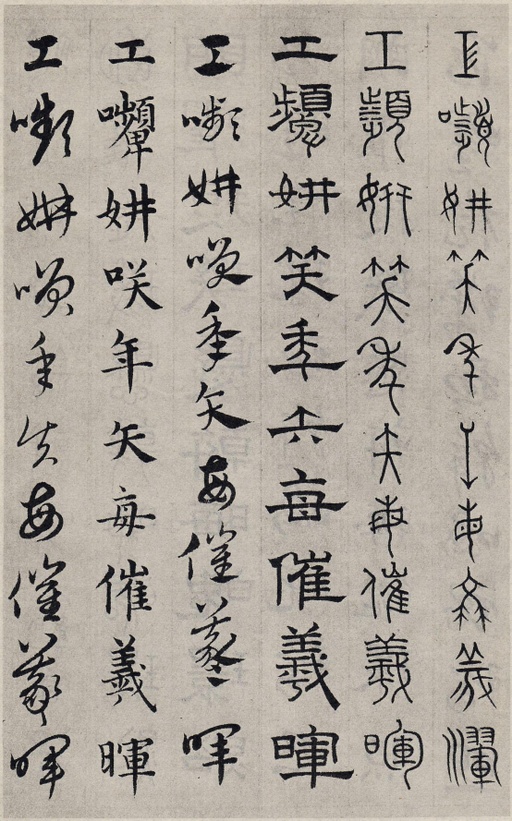 工嚬妍笑年矢每催羲暉
工顰妍笑年矢每催羲暉
工顰妍笑年矢每催羲暉
工嚬妍咲年矢每催羲暉
工嚬妍咲年矢每催羲暉
工嚬妍咲年矢每催羲暉